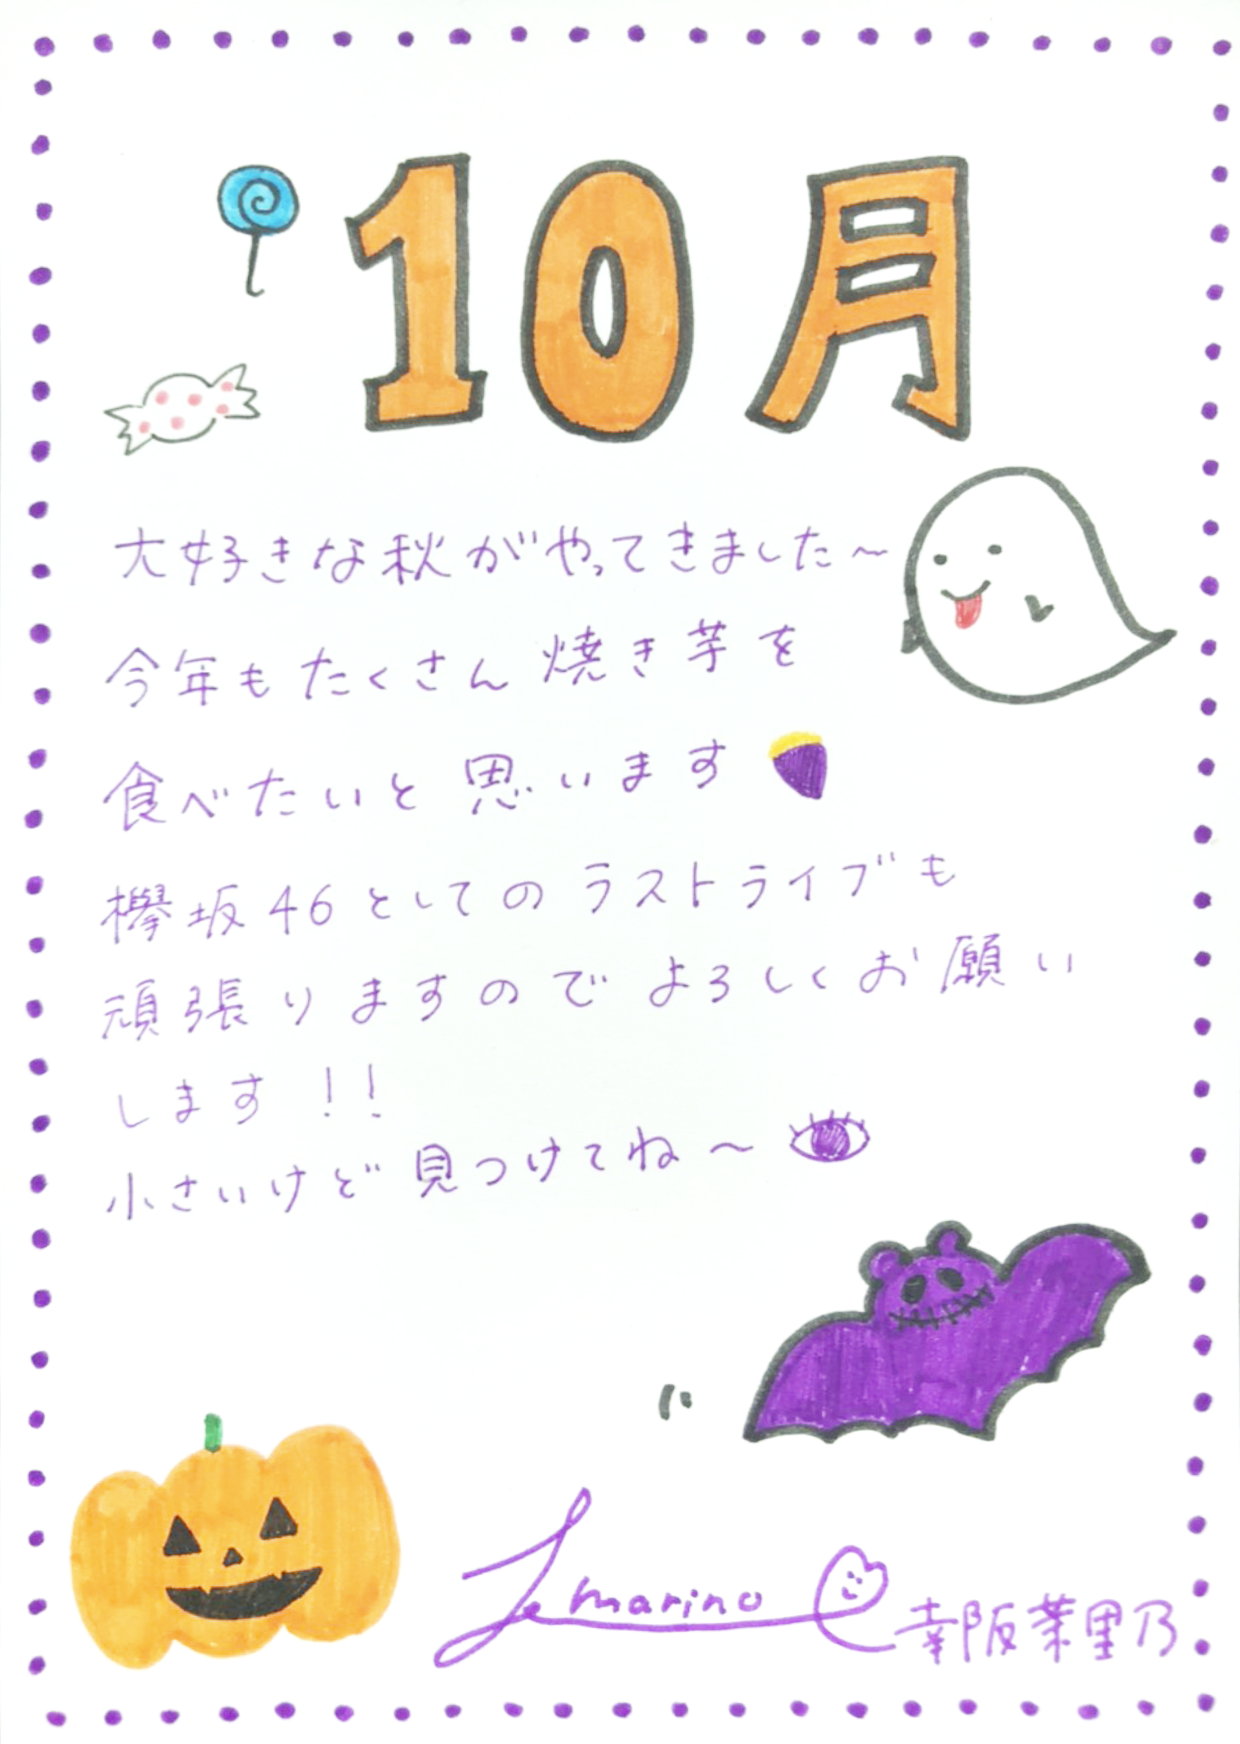 10月
大好きな秋がやってきました～
今年もたくさん焼き芋を
食べたいと思います
欅坂46としてのラストライブも
頑張りますのでよろしくお願い
します!!
小さいけど見つけてね～
marino
幸阪茉里乃